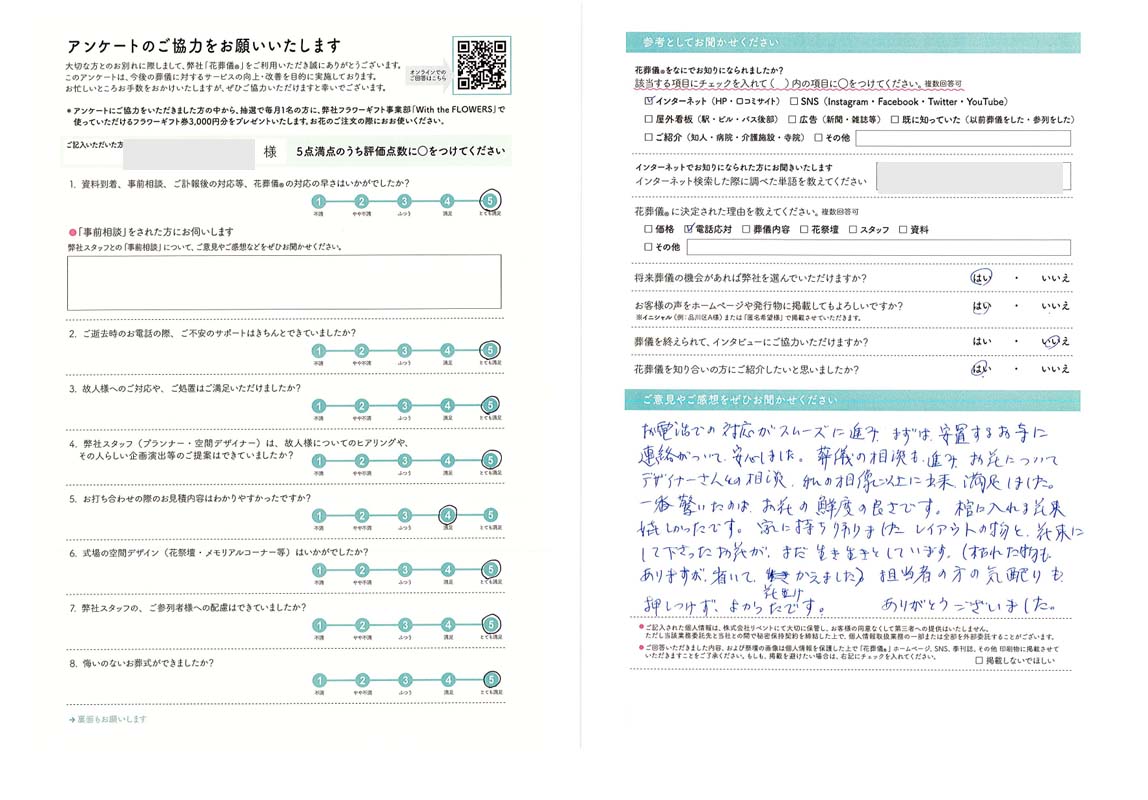 アンケートのご協力をお願いいたします
大切な方とのお別れに際しまして、弊社「花葬儀®」をご利用いただき誠にありがとうございます。
このアンケートは、今後の葬儀に対するサービスの向上・改善を目的に実施しております。
お忙しいところお手数をおかけいたしますが、ぜひご協力いただけますと幸いでございます。
オンラインでの
ご回答はこちら
* アンケートにご協力をいただきました方の中から、抽選で毎月1名の方に、弊社フラワーギフト事業部「With the FLOWERS」で
使っていただけるフラワーギフト券3,000円分をプレゼントいたします。お花のご注文の際にお使いください。
ご記入いただいた方
様
5点満点のうち評価点数に〇をつけてください
1. 資料到着、事前相談、ご訃報後の対応等、花葬儀®の対応の早さはいかがでしたか?
1 2 3 4 5
不満 やや不満 ふつう 満足 とても満足
「事前相談」をされた方にお伺いします
弊社スタッフとの「事前相談」について、ご意見やご感想などをぜひお聞かせください。
2. ご逝去時のお電話の際、ご不安のサポートはきちんとできていましたか?
1 2 3 4 5
不満 やや不満 ふつう 満足 とても満足
3. 故人様へのご対応や、ご処置はご満足いただけましたか?
1 2 3 4 5
不満 やや不満 ふつう 満足 とても満足
4. 弊社スタッフ(プランナー・空間デザイナー)は、故人様についてのヒアリングや、
その人らしい企画演出等のご提案はできていましたか?
1 2 3 4 5
不満 やや不満 ふつう 満足 とても満足
5. お打ち合わせの際のお見積内容はわかりやすかったですか?
1 2 3 4 5
不満 やや不満 ふつう 満足 とても満足
6. 式場の空間デザイン(花祭壇・メモリアルコーナー等)はいかがでしたか?
1 2 3 4 5
不満 やや不満 ふつう 満足 とても満足
7. 弊社スタッフの、ご参列者様への配慮はできていましたか?
1 2 3 4 5
不満 やや不満 ふつう 満足 とても満足
8. 悔いのないお葬式ができましたか?
1 2 3 4 5
不満 やや不満 ふつう 満足 とても満足
→ 裏面もお願いします
参考としてお聞かせください
花葬儀®をなにでお知りになられましたか?
該当する項目にチェックを入れて( )内の項目に〇をつけてください。複数回答可
インターネット(HP・口コミサイト) □ SNS(Instagram・Facebook・Twitter・YouTube)
□ 屋外看板(駅・ビル・バス後部) □ 広告(新聞・雑誌等) □ 既に知っていた(以前葬儀をした・参列をした)
□ ご紹介(知人・病院・介護施設・寺院) □ その他
インターネットでお知りになられた方にお聞きいたします
インターネット検索した際に調べた単語を教えてください
花葬儀®に決定された理由を教えてください。複数回答可
□ 価格 ☑ 電話応対 □ 葬儀内容 □ 花祭壇 □ スタッフ □ 資料
□ その他
将来葬儀の機会があれば弊社を選んでいただけますか? はい ・ いいえ
お客様の声をホームページや発行物に掲載してもよろしいですか? はい ・ いいえ
※イニシャル(例:品川区A様)または「匿名希望様」で掲載させていただきます。
葬儀を終えられて、インタビューにご協力いただけますか? はい ・ いいえ
花葬儀を知り合いの方にご紹介したいと思いましたか? はい ・ いいえ
ご意見やご感想をぜひお聞かせください
お電話での対応がスムーズに進み、まずは、安置するお寺に
連絡がついて、安心しました。葬儀の相談も進み、お花について
デザイナーさんとの相談、私の想像以上に出来、満足しました。
一番驚いたのは、お花の鮮度の良さです。棺に入れる花束
嬉しかったです。家に持ち帰りましたレイアウトの物と、花束に
して下さったお花が、まだ生き生きとしています。(枯れた物も
ありますが、省いて、かえました) 担当者の方の気配りも
花生け
押しつけず、よかったです。 ありがとうございました。
ご記入された個人情報は、株式会社リベントにて大切に保管し、お客様の同意なくして第三者への提供はいたしません。
ただし当該業務委託先と当社との間で秘密保持契約を締結した上で、個人情報取扱業務の一部または全部を外部委託することがございます。
ご回答いただきました内容、および祭壇の画像は個人情報を保護した上で「花葬儀®」ホームページ、SNS、季刊誌、その他 印刷物に掲載させて
いただきますことをご了承ください。もしも、掲載を避けたい場合は、右記にチェックを入れてください。 □ 掲載しないでほしい